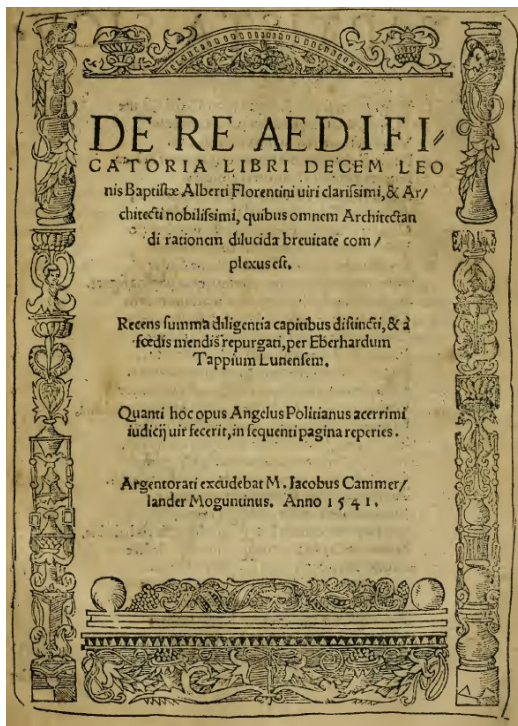 DE RE AEDIFI⸗
CATORIA LIBRI DECEM LEO
nis Baptistæ Alberti Florentini uiri clarissimi, & Ar/
chitecti nobilissimi, quibus omnem Architectan
di rationem dilucida breuitate com /
plexus est.
Recens summa diligentia capitibus distincti, & à
fœdis mendis repurgati, per Eberhardum
Tappium Lunensem.
Quanti hoc opus Angelus Politianus acerrimi
iudicij uir fecerit, in sequenti pagina reperies.
Argentorati excudebat M. Iacobus Cammer/
lander Moguntinus. Anno 1541.